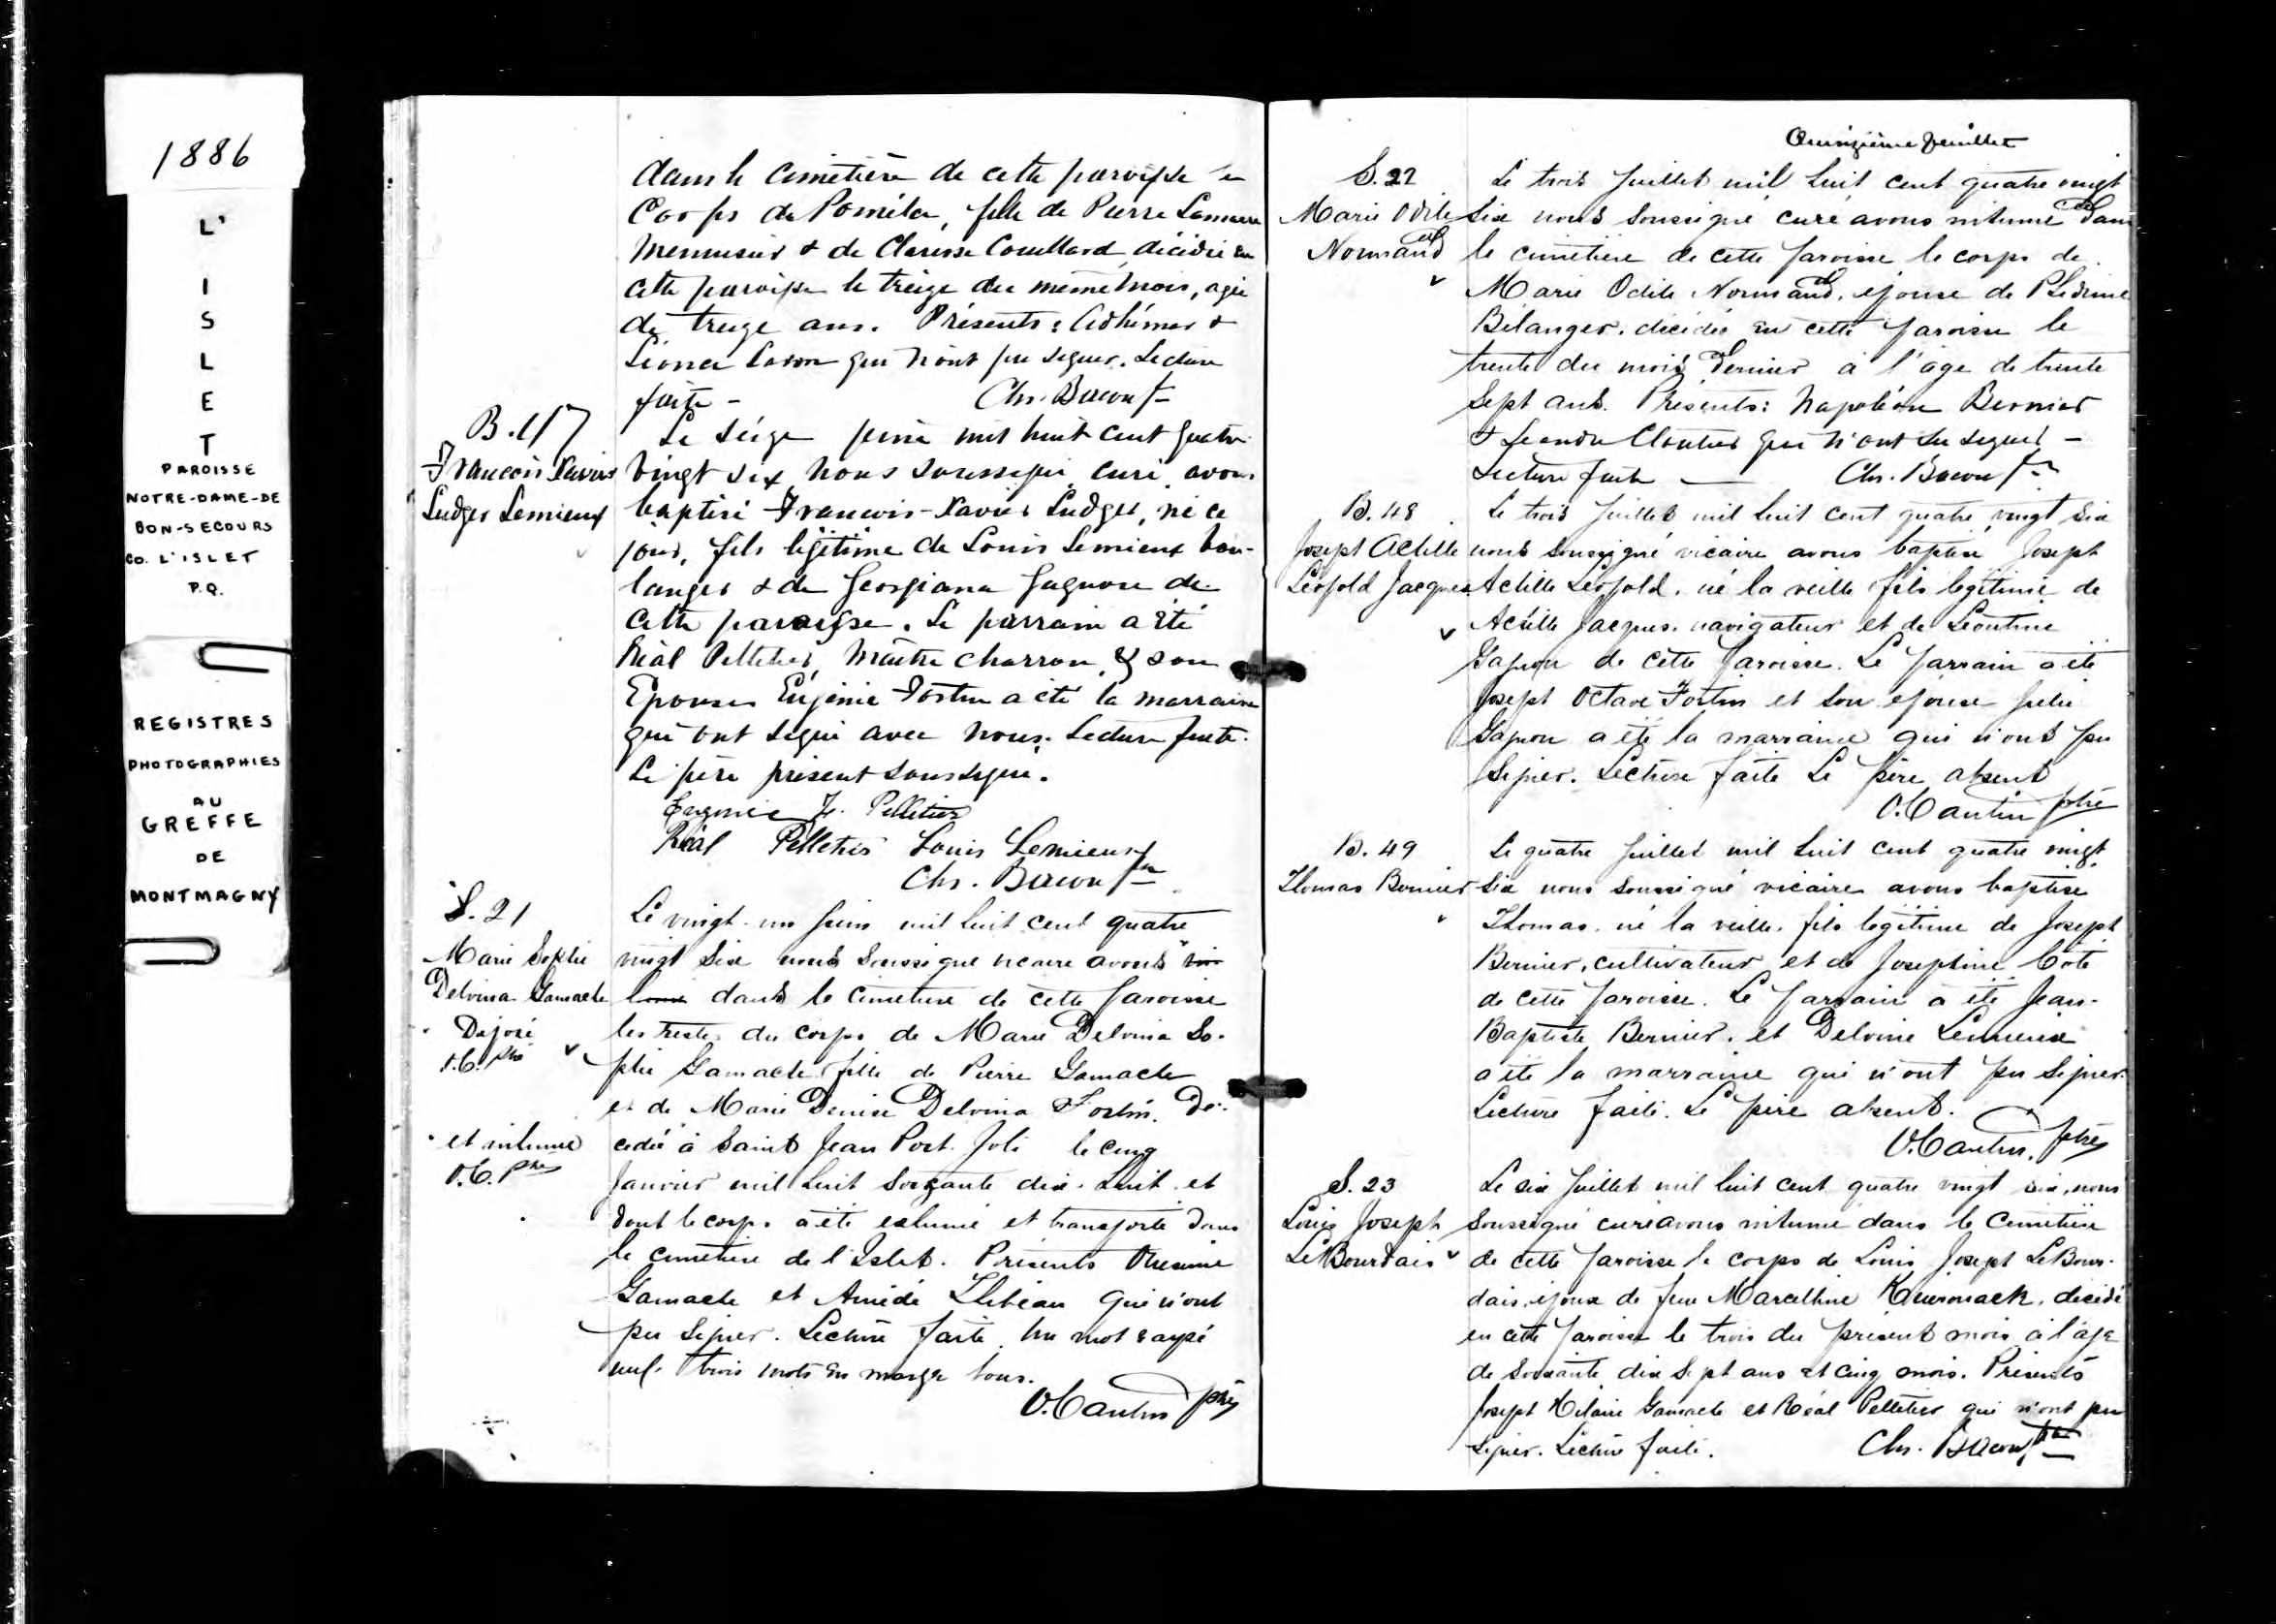 1886
L'
I
S
L
E
T
PAROISSE
NOTRE-DAME-DE
BON-SECOURS
CO. L'ISLET
P.Q.
REGISTRES
PHOTOGRAPHIES
AU
GREFFE
DE
MONTMAGNY
dans le cimetière de cette paroisse le
Corps de Poméla, fille de Pierre Lamarre
Menuisier & de Clarisse Couillard décédée en
cette paroisse le treize du même mois, agée
de treize ans. Présents: Adhémar &
Léonce Caron qui n'ont pu signer. Lecture
faite - Chs. Bacon Ptre
B. 47
François Xavier
Ludger Lemieux
Le seize juin mil huit cent quatre
vingt six nous soussigné, curé, avons
baptisé François-Xavier Ludger, né ce
jour, fils légitime de Louis Lemieux bou-
langer & de Georgiana Gagnon de
cette paroisse. Le parrain a été
Réal Pelletier, Maître charron & son
Epouse Eugénie Fortin a été la marraine
qui ont signé avec nous. Lecture faite.
Le père présent soussigné.
Eugénie F. Pelletier
Réal Pelletier Louis Lemieux
Chs. Bacon Ptre
S. 21
Marie Sophie
Delvina Gamache
Déposé
O.C. Ptre
et inhumé
O.C. Ptre
Le vingt-un juin mil huit cent quatre
vingt six nous soussigné vicaire avons
dans le cimetière de cette paroisse
les restes du corps de Marie Delvina So-
phie Gamache fille de Pierre Gamache
et de Marie Denise Delvina Fortin. Dé-
cédée à Saint Jean Port Joli le cinq
Janvier mil huit soixante dix-huit et
dont le corps a été exhumé et transporté dans
le cimetière de l'Islet. Présents Onésime
Gamache et Amédé Thibeau qui n'ont
pu signer. Lecture faite. Un mot rayé
nul. trois mots en marge bons.
O. Cantin ptre
Quinzième feuillet
S. 22
Marie Odile
Normand
Le trois Juillet mil huit cent quatre vingt
six nous soussigné curé avons inhumé dans
le cimetière de cette paroisse le corps de
Marie Odile Normand, épouse de
Bélanger, décédée en cette paroisse le
trente du mois dernier à l'âge de trente
sept ans. Présents: Napoléon Bernier
& Léandre Cloutier qui n'ont su signer -
Lecture faite — Chs. Bacon Ptre
B. 48
Joseph Achille
Léopold Jacques
Le trois Juillet mil huit cent quatre vingt six
nous soussigné vicaire avons baptisé Joseph
Achille Léopold, né la veille fils légitime de
Achille Jacques, navigateur et de Léontine
Gagnon de cette paroisse. Le parrain a été
Joseph Octave Fortin et son épouse Julie
Gagnon a été la marraine qui n'ont pu
signer. Lecture faite Le père absent
O. Cantin ptre
B. 49
Thomas Bernier
Le quatre Juillet mil huit cent quatre vingt
six nous soussigné vicaire avons baptisé
Thomas, né la veille, fils légitime de Joseph
Bernier, cultivateur et de Josephine Côté
de cette paroisse. Le parrain a été Jean-
Baptiste Bernier, et Delvine Lemieux
a été la marraine qui n'ont pu signer.
Lecture faite. Le père absent.
O. Cantin, ptre
S. 23
Louis Joseph
LeBourdais
Le six Juillet mil huit cent quatre vingt six, nous
soussigné curé avons inhumé dans le cimetière
de cette paroisse le corps de Louis Joseph LeBour-
dais, époux de feue Marcelline décédé
en cette paroisse le trois du présent mois à l'âge
de soixante dix sept ans et cinq mois. Présents
Joseph Hilaire Gamache et Réal Pelletier qui n'ont pu
signer. Lecture faite. Chs. Bacon Ptre